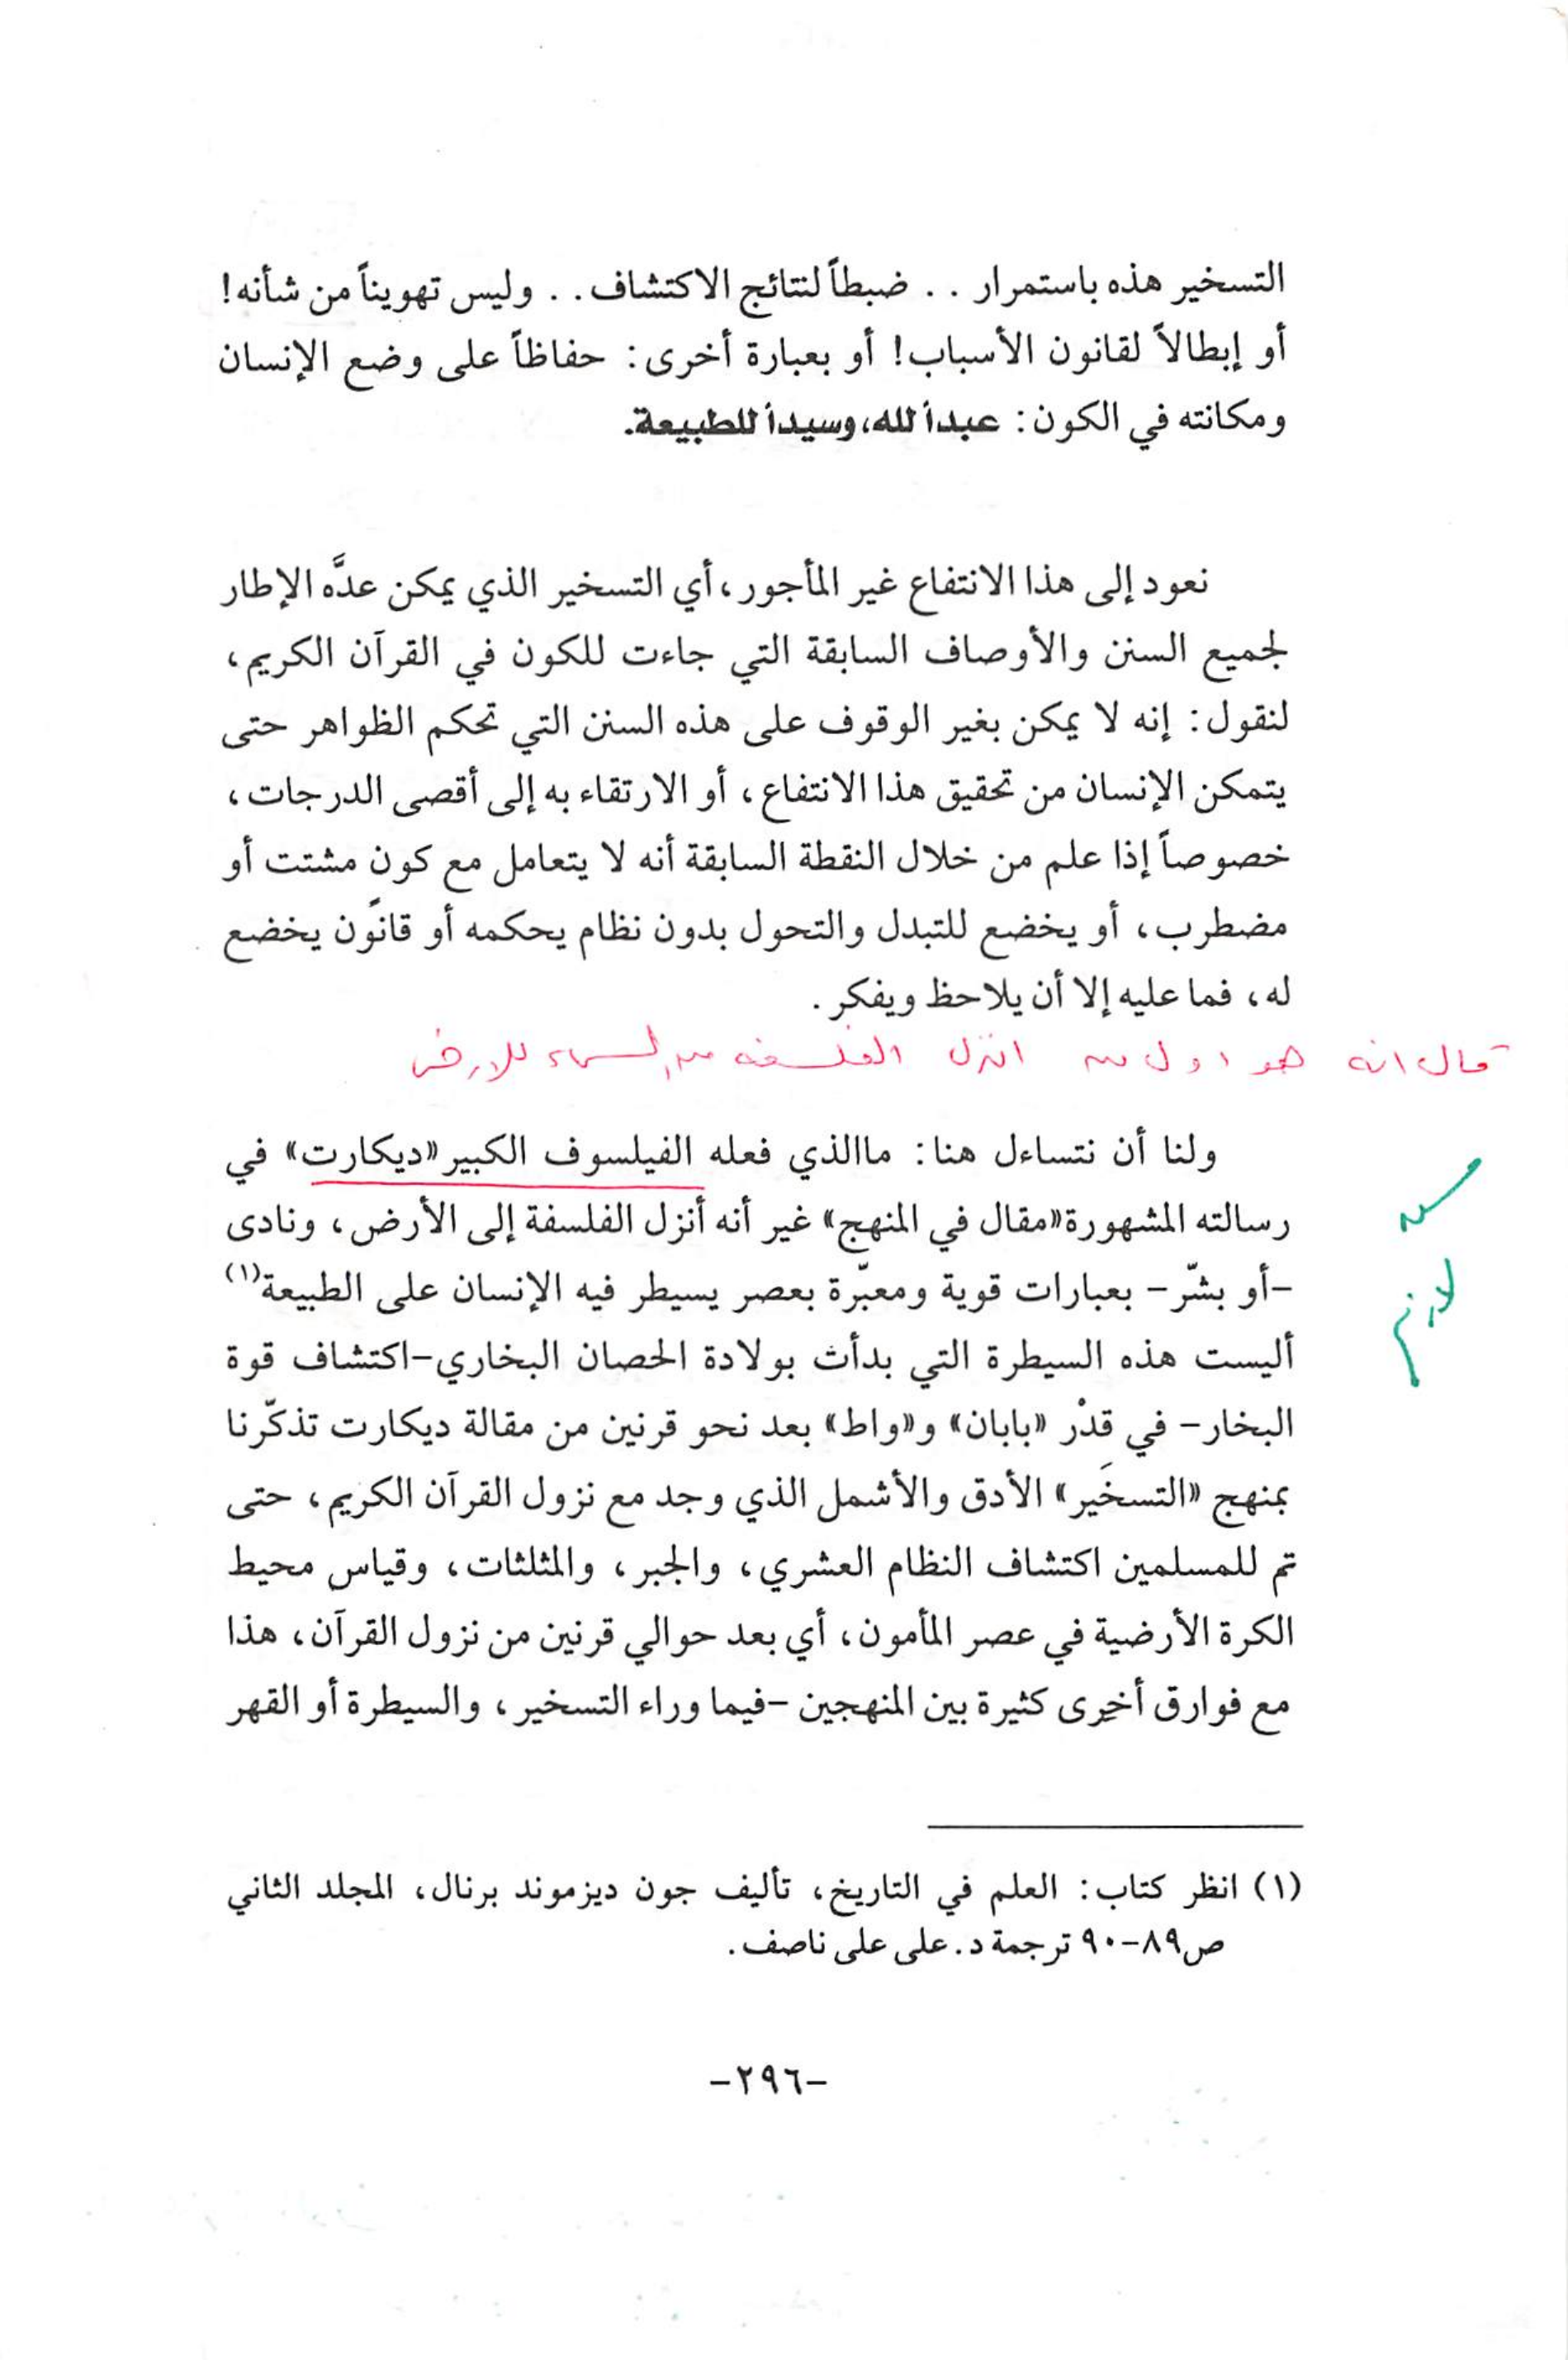 التسخير هذه باستمرار . . ضبطاً لنتائج الاكتشاف . . وليس تهويناً من شأنه!
أو إبطالاً لقانون الأسباب! أو بعبارة أخرى: حفاظاً على وضع الإنسان
ومكانته في الكون: عبداً لله، وسيداً للطبيعة.
نعود إلى هذا الانتفاع غير المأجور، أي التسخير الذي يمكن عدَّه الإطار
لجميع السنن والأوصاف السابقة التي جاءت للكون في القرآن الكريم،
لنقول: إنه لا يمكن بغير الوقوف على هذه السنن التي تحكم الظواهر حتى
يتمكن الإنسان من تحقيق هذا الانتفاع، أو الارتقاء به إلى أقصى الدرجات،
خصوصاً إذا علم من خلال النقطة السابقة أنه لا يتعامل مع كون مشتت أو
مضطرب، أو يخضع للتبدل والتحول بدون نظام يحكمه أو قانون يخضع
له، فما عليه إلا أن يلاحظ ويفكر.
قال انه هو اول من انزل الفلسفه من السماء للارض
ولنا أن نتساءل هنا: ماالذي فعله الفيلسوف الكبير «ديكارت» في
رسالته المشهورة «مقال في المنهج» غير أنه أنزل الفلسفة إلى الأرض، ونادى
-أو بشّر- بعبارات قوية ومعبّرة بعصر يسيطر فيه الإنسان على الطبيعة(١)
أليست هذه السيطرة التي بدأت بولادة الحصان البخاري-اكتشاف قوة
البخار- في قِدْر «بابان» و«واط» بعد نحو قرنين من مقالة ديكارت تذكّرنا
بمنهج «التسخير» الأدق والأشمل الذي وجد مع نزول القرآن الكريم، حتى
تم للمسلمين اكتشاف النظام العشري، والجبر، والمثلثات، وقياس محيط
الكرة الأرضية في عصر المأمون، أي بعد حوالي قرنين من نزول القرآن، هذا
مع فوارق أخرى كثيرة بين المنهجين -فيما وراء التسخير، والسيطرة أو القهر
لازم
(١) انظر كتاب: العلم في التاريخ، تأليف جون ديزموند برنال، المجلد الثاني
ص٨٩-٩٠ ترجمة د. على على ناصف.
-٢٩٦-